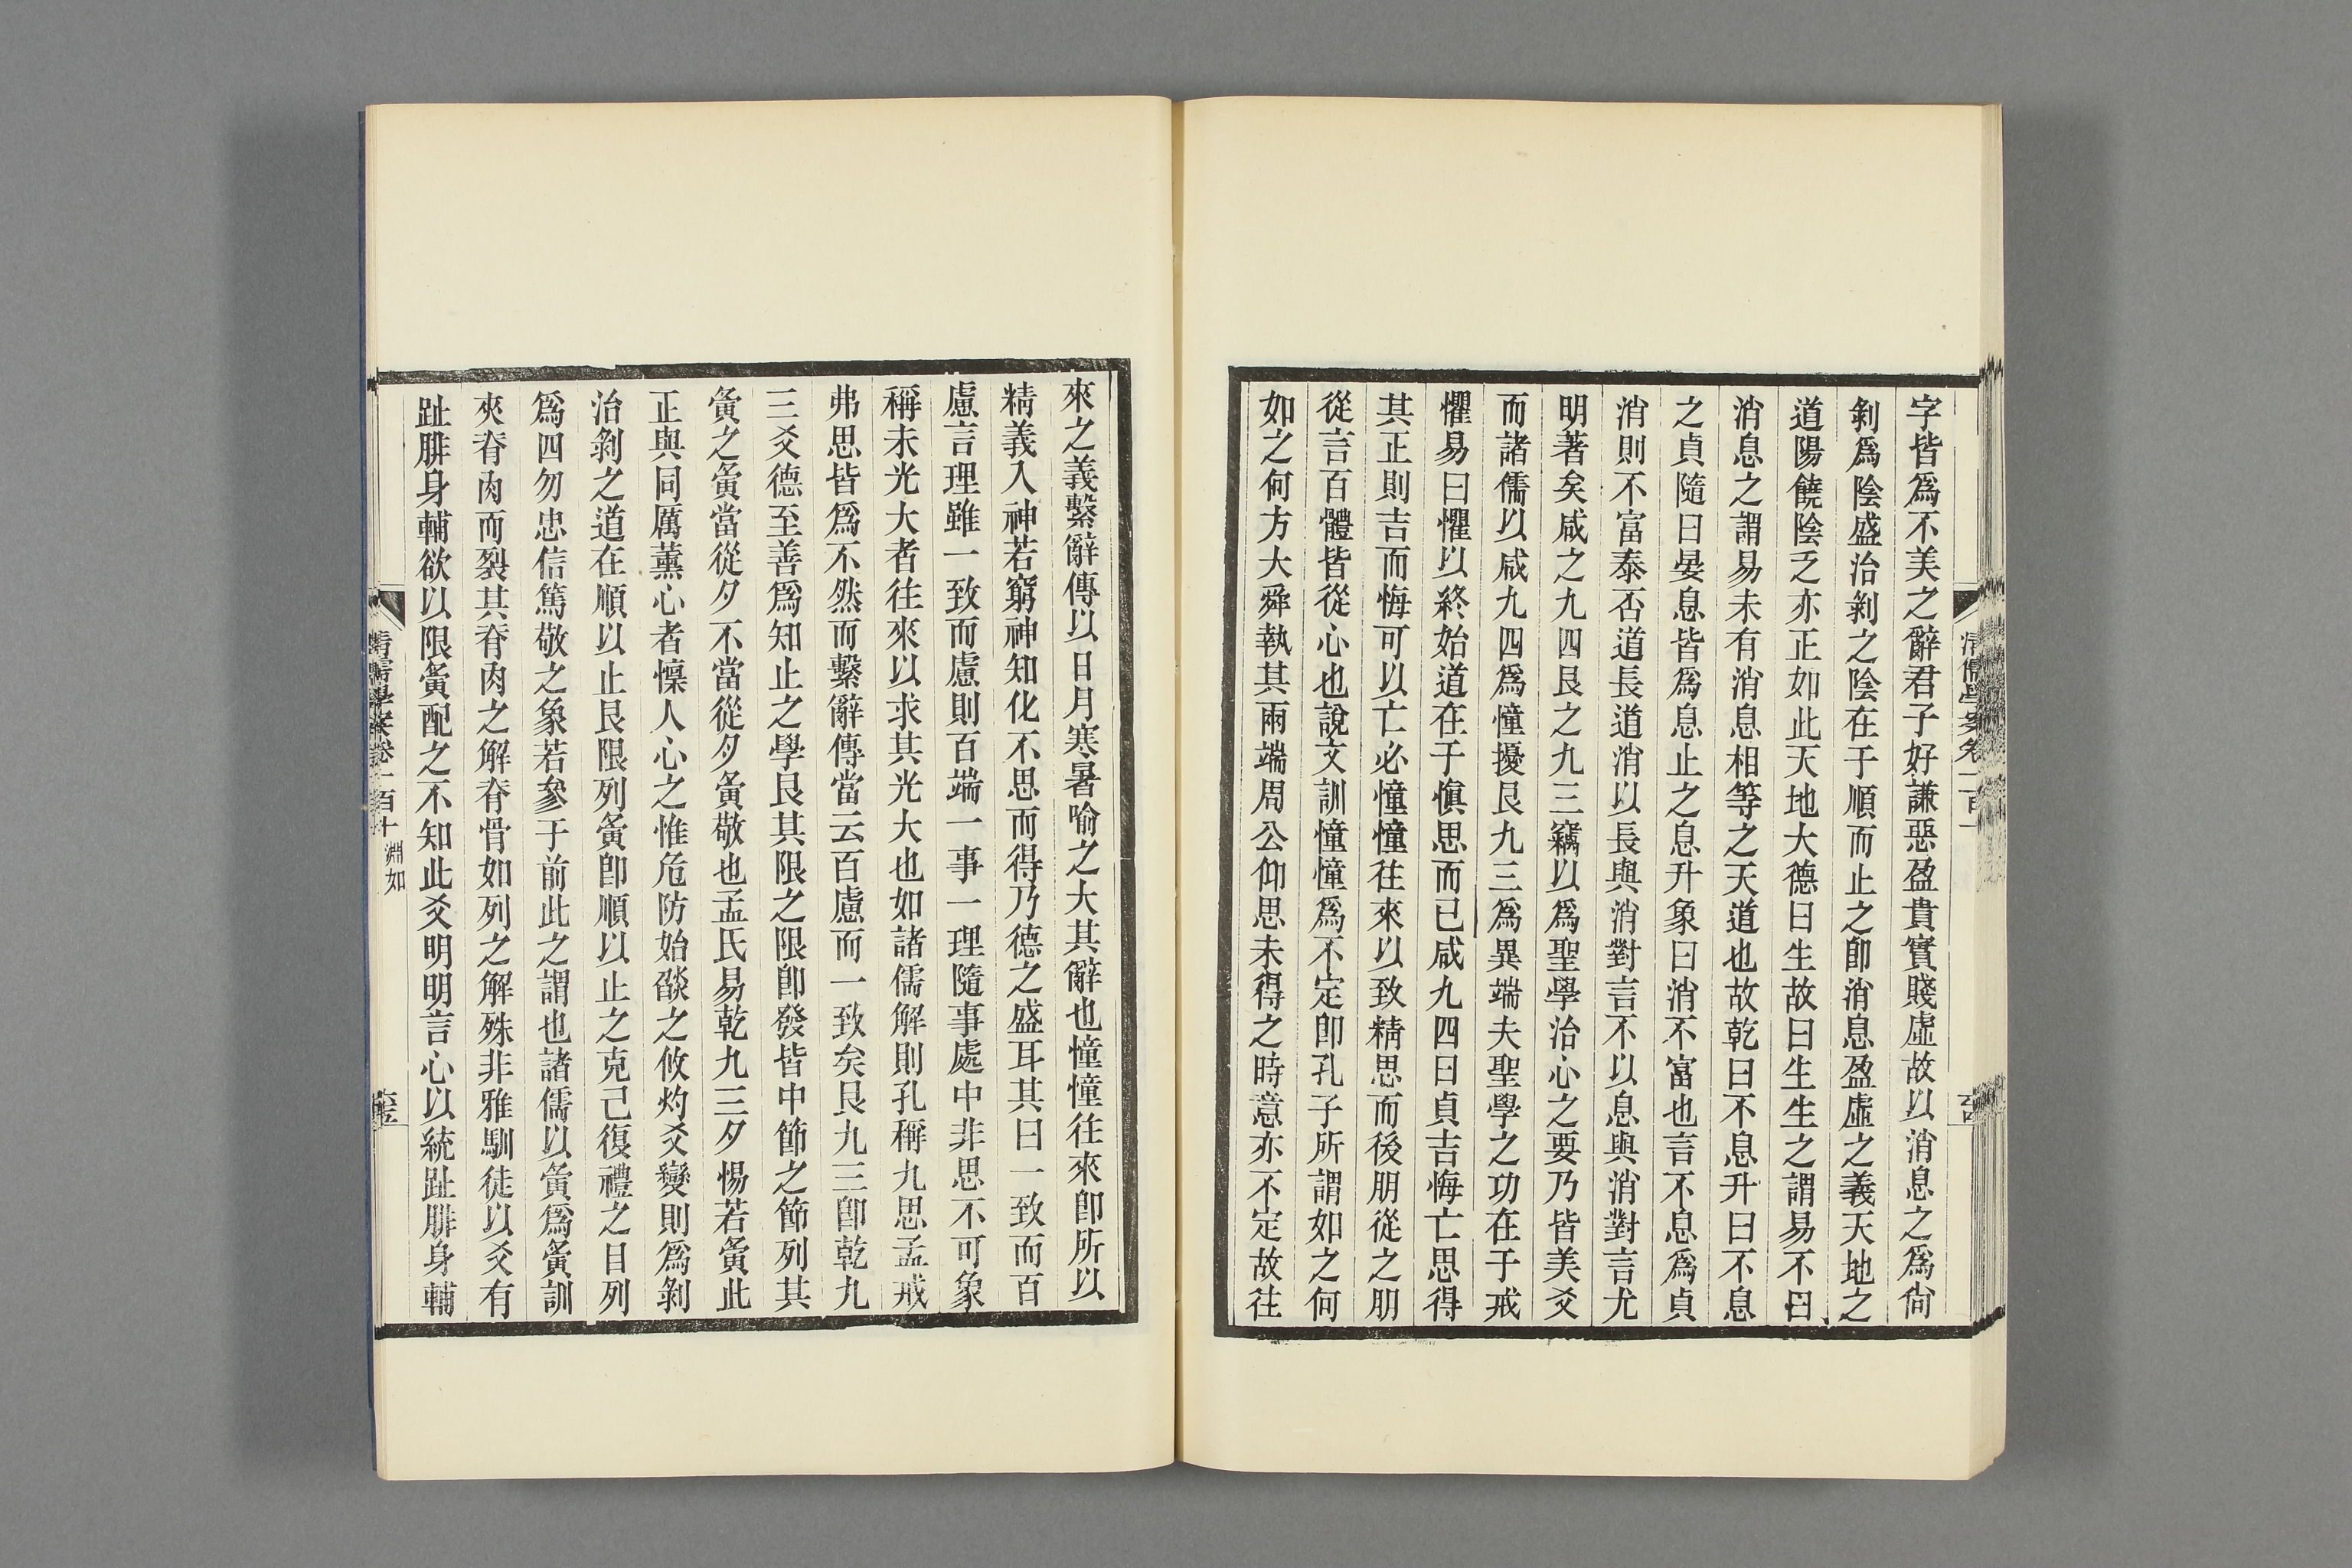 字皆爲不美之辭君子好謙惡盈貴實賤虛故以消息之爲尙
剝爲陰盛治剝之陰在于順而止之卽消息盈虛之義天地之
道陽饒陰乏亦正如此天地大德曰生故曰生生之謂易不曰
消息之謂易未有消息相等之天道也故乾曰不息升曰不息
之貞隨曰晏息皆爲息止之息升象曰消不富也言不息爲貞
消則不富泰否道長道消以長與消對言不以息與消對言尤
明著矣咸之九四艮之九三竊以爲聖學治心之要乃皆美爻
而諸儒以咸九四爲憧擾艮九三爲異端夫聖學之功在于戒
懼易曰懼以終始道在于愼思而已咸九四曰貞吉悔亡思得
其正則吉而悔可以亡必憧憧往來以致精思而後朋從之朋
從言百體皆從心也說文訓憧憧爲不定卽孔子所謂如之何
如之何方大舜執其兩端周公仰思未得之時意亦不定故往
來之義繫辭傳以日月寒暑喻之大其辭也憧憧往來卽所以
精義入神若窮神知化不思而得乃德之盛耳其曰一致而百
慮言理雖一致而慮則百端一事一理隨事處中非思不可象
稱未光大者往來以求其光大也如諸儒解則孔稱九思孟戒
弗思皆爲不然而繫辭傳當云百慮而一致矣艮九三卽乾九
三爻德至善爲知止之學艮其限之限卽發皆中節之節列其
夤之夤當從夕不當從夕夤敬也孟氏易乾九三夕惕若夤此
正與同厲薰心者懍人心之惟危防始燄之攸灼爻變則爲剝
治剝之道在順以止艮限列夤卽順以止之克己復禮之目列
爲四勿忠信篤敬之象若參于前此之謂也諸儒以夤爲夤訓
夾脊肉而裂其脊肉之解脊骨如列之解殊非雅馴徒以爻有
趾腓身輔欲以限夤配之不知此爻明明言心以統趾腓身輔
清儒學案卷一百十 淵如